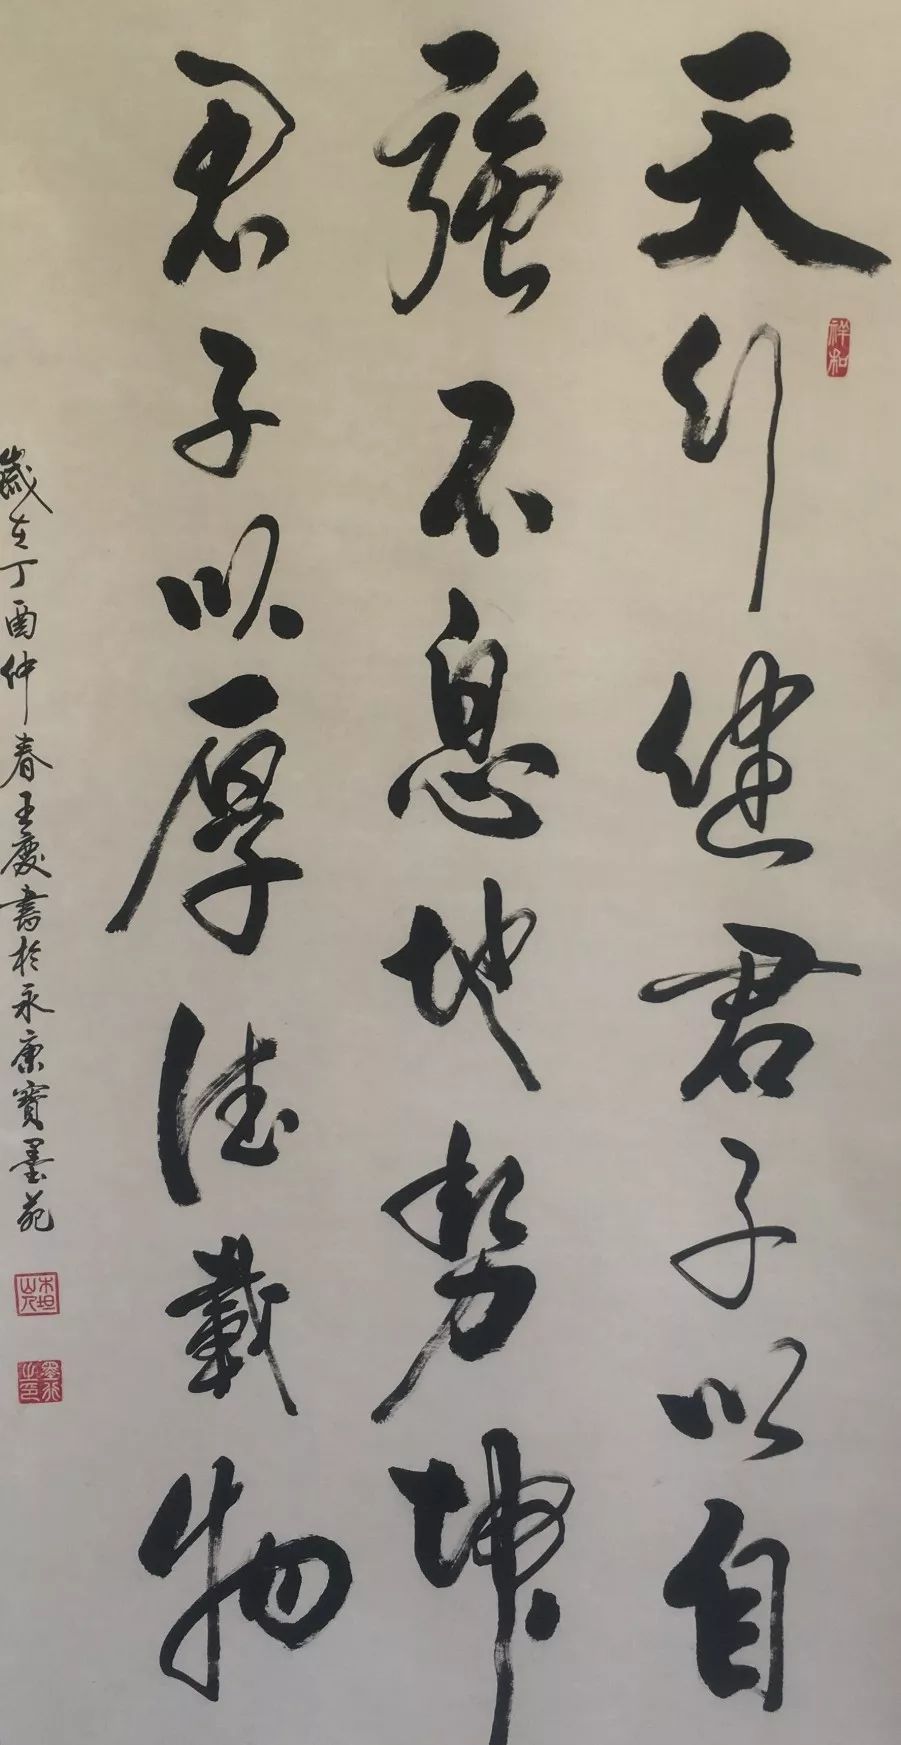 天行健君子以自
強不息地势坤
君子以厚德載物
歲在丁酉仲春王慶書於永康寶墨苑
祥和